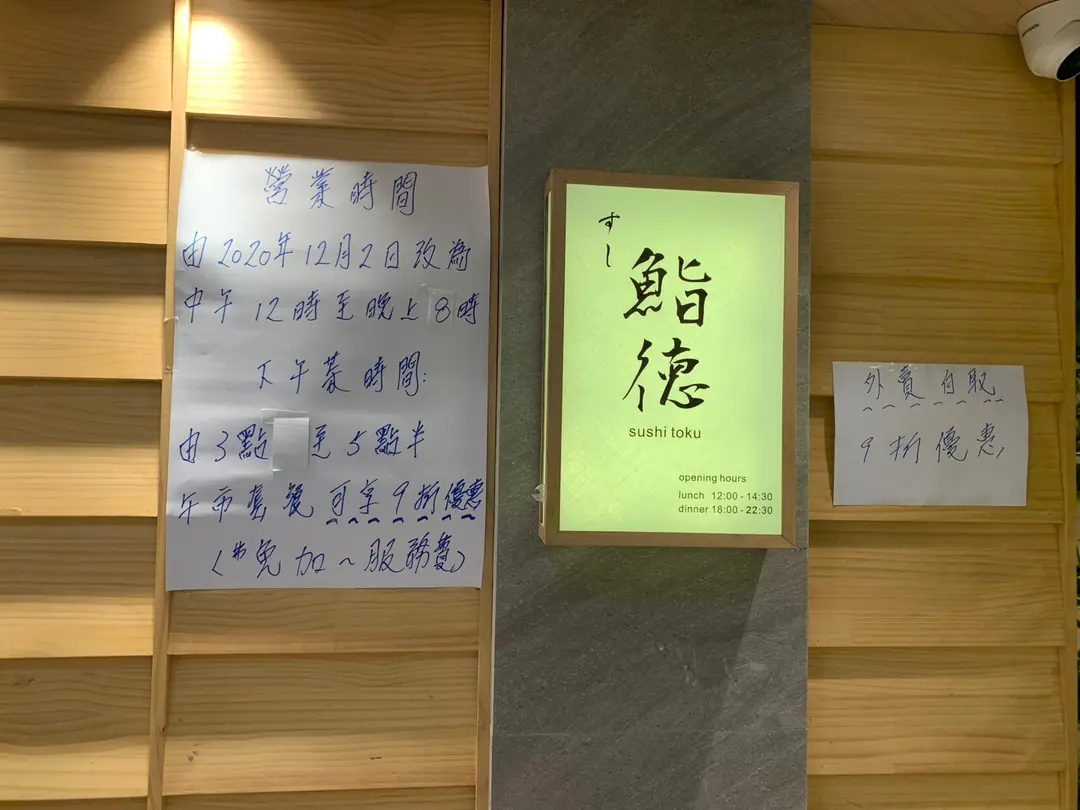 營業時間
由2020年12月2日改為
中午12時至晚上8時
下午茶時間:
由3點 至5點半
午市套餐 可享9折優惠
(#免加一服務費)
すし
鮨徳
sushi toku
opening hours
lunch 12:00 - 14:30
dinner 18:00 - 22:30
外賣自取
9折優惠